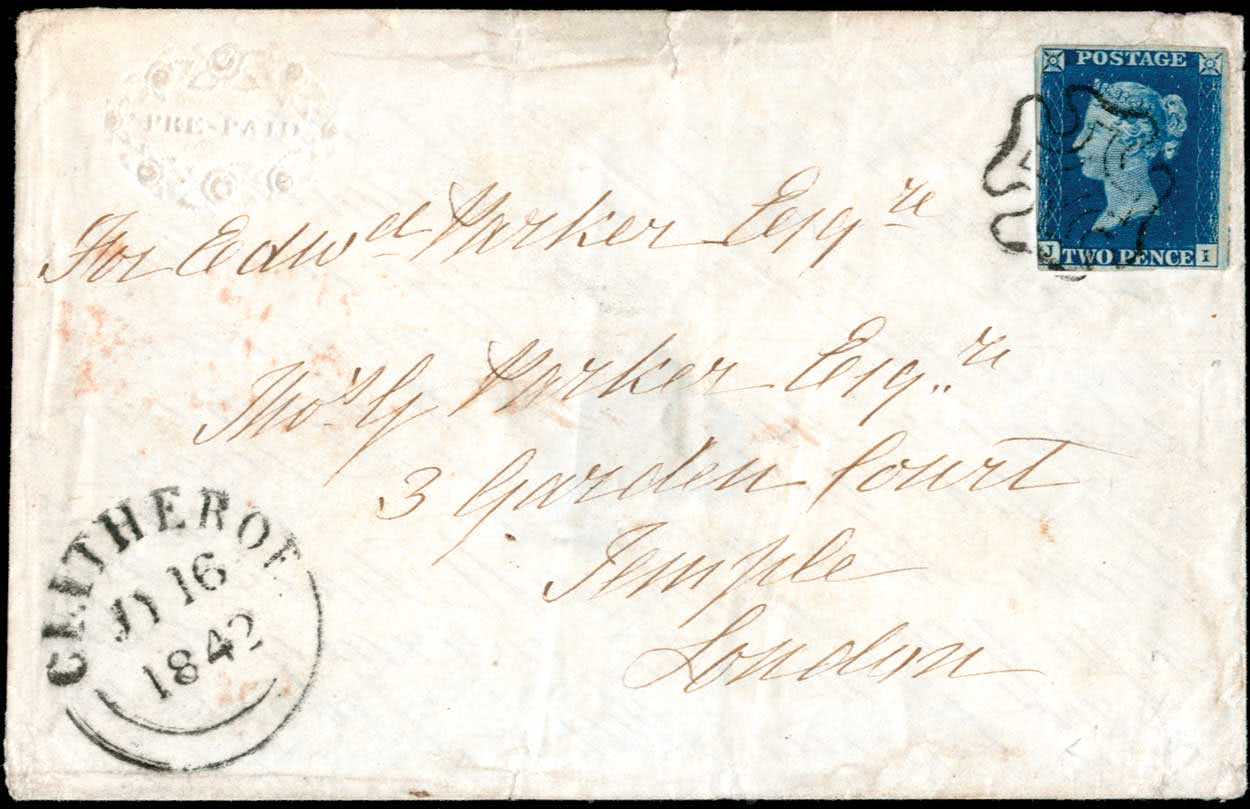 PRE-PAID
POSTAGE
J TWO PENCE I
For Edwd Parker Esqre
Thos G Parker Esqre
3 Garden Court
Temple
London
CLITHEROE
JY 16
1842